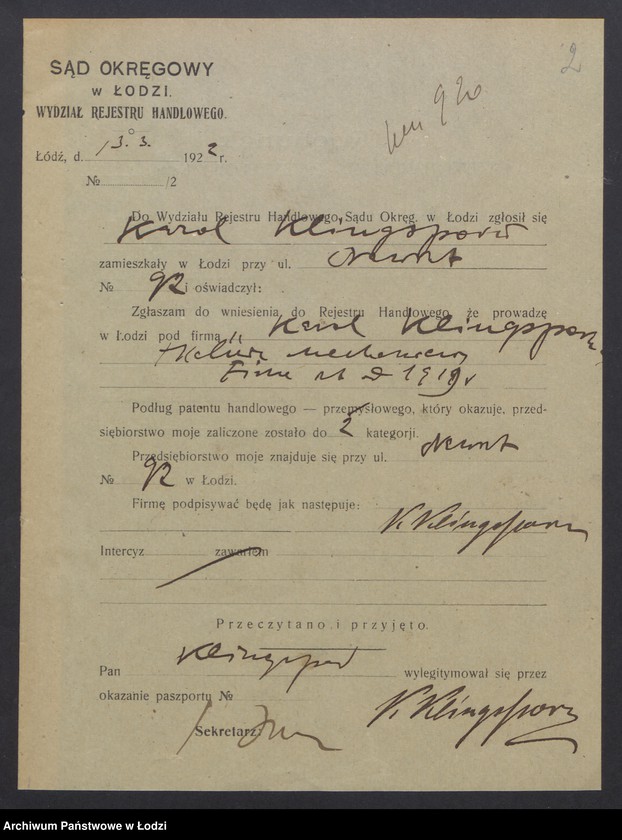 2
SĄD OKRĘGOWY
w ŁODZI.
WYDZIAŁ REJESTRU HANDLOWEGO.
Łódź, d. 13. 3. 1922 r.
№ /2
Do Wydziału Rejestru Handlowego Sądu Okręg. w Łodzi zgłosił się
Karol Klingsporn
zamieszkały w Łodzi przy ul. Nawrot
№ 92 i oświadczył:
Zgłaszam do wniesienia do Rejestru Handlowego, że prowadzę
w Łodzi pod firmą „Karol Klingsporn
1919 r
Podług patentu handlowego — przemysłowego, który okazuje, przed-
siębiorstwo moje zaliczone zostało do 2 kategorji.
Przedsiębiorstwo moje znajduje się przy ul. Nawrot
№ 92 w Łodzi.
Firmę podpisywać będę jak następuje:
K. Klingsporn
Intercyz zawarłem
Przeczytano i przyjęto.
Pan Klingsporn wylegitymował się przez
okazanie paszportu №
K. Klingsporn
Sekretarz:
Archiwum Państwowe w Łodzi